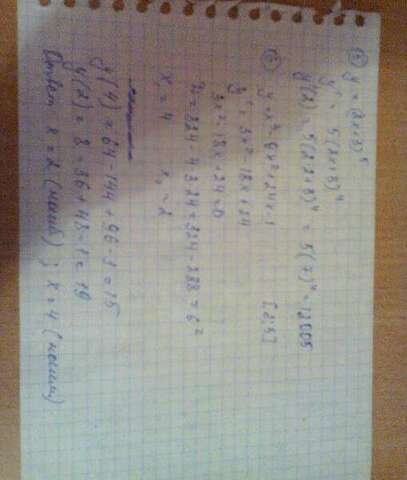 ⑤ y = (2x+3)⁵
y' = 5(2x+3)⁴
y'(2) = 5(2·2+3)⁴ = 5(7)⁴ = 12005
⑥ y = x³ - 9x² + 24x - 1 [2;5]
y' = 3x² - 18x + 24
3x² - 18x + 24 = 0
D = 324 - 4·3·24 = 324 - 288 = 6²
x₁ = 4 x₂ = 2
y(4) = 64 - 144 + 96 - 1 = 15
y(2) = 8 - 36 + 48 - 1 = 19
Ответ x = 2 (наиб) ; x = 4 (наим)